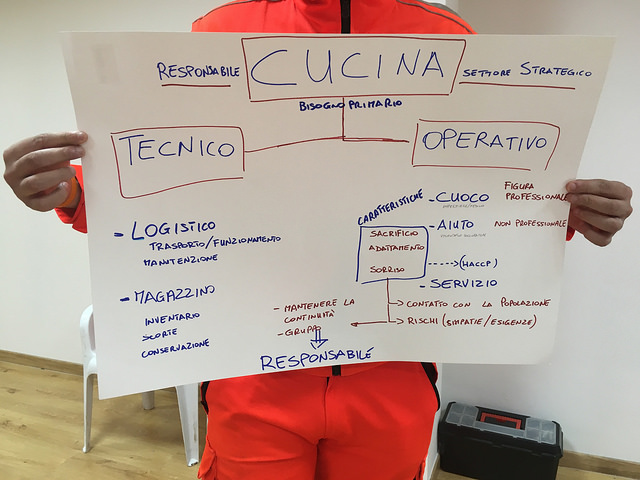 RESPONSABILE
CUCINA
SETTORE STRATEGICO
BISOGNO PRIMARIO
TECNICO
OPERATIVO
- LOGISTICO
TRASPORTO/FUNZIONAMENTO
MANUTENZIONE
- MAGAZZINO
INVENTARIO
SCORTE
CONSERVAZIONE
CARATTERISTICHE
SACRIFICIO
ADATTAMENTO
SORRISO
- CUOCO
FIGURA
PROFESSIONALE
- AIUTO
NON PROFESSIONALE
(HACCP)
- SERVIZIO
CONTATTO CON LA POPOLAZIONE
RISCHI (SIMPATIE/ESIGENZE)
- MANTENERE LA
CONTINUITÀ
- GRUPPO
RESPONSABILE